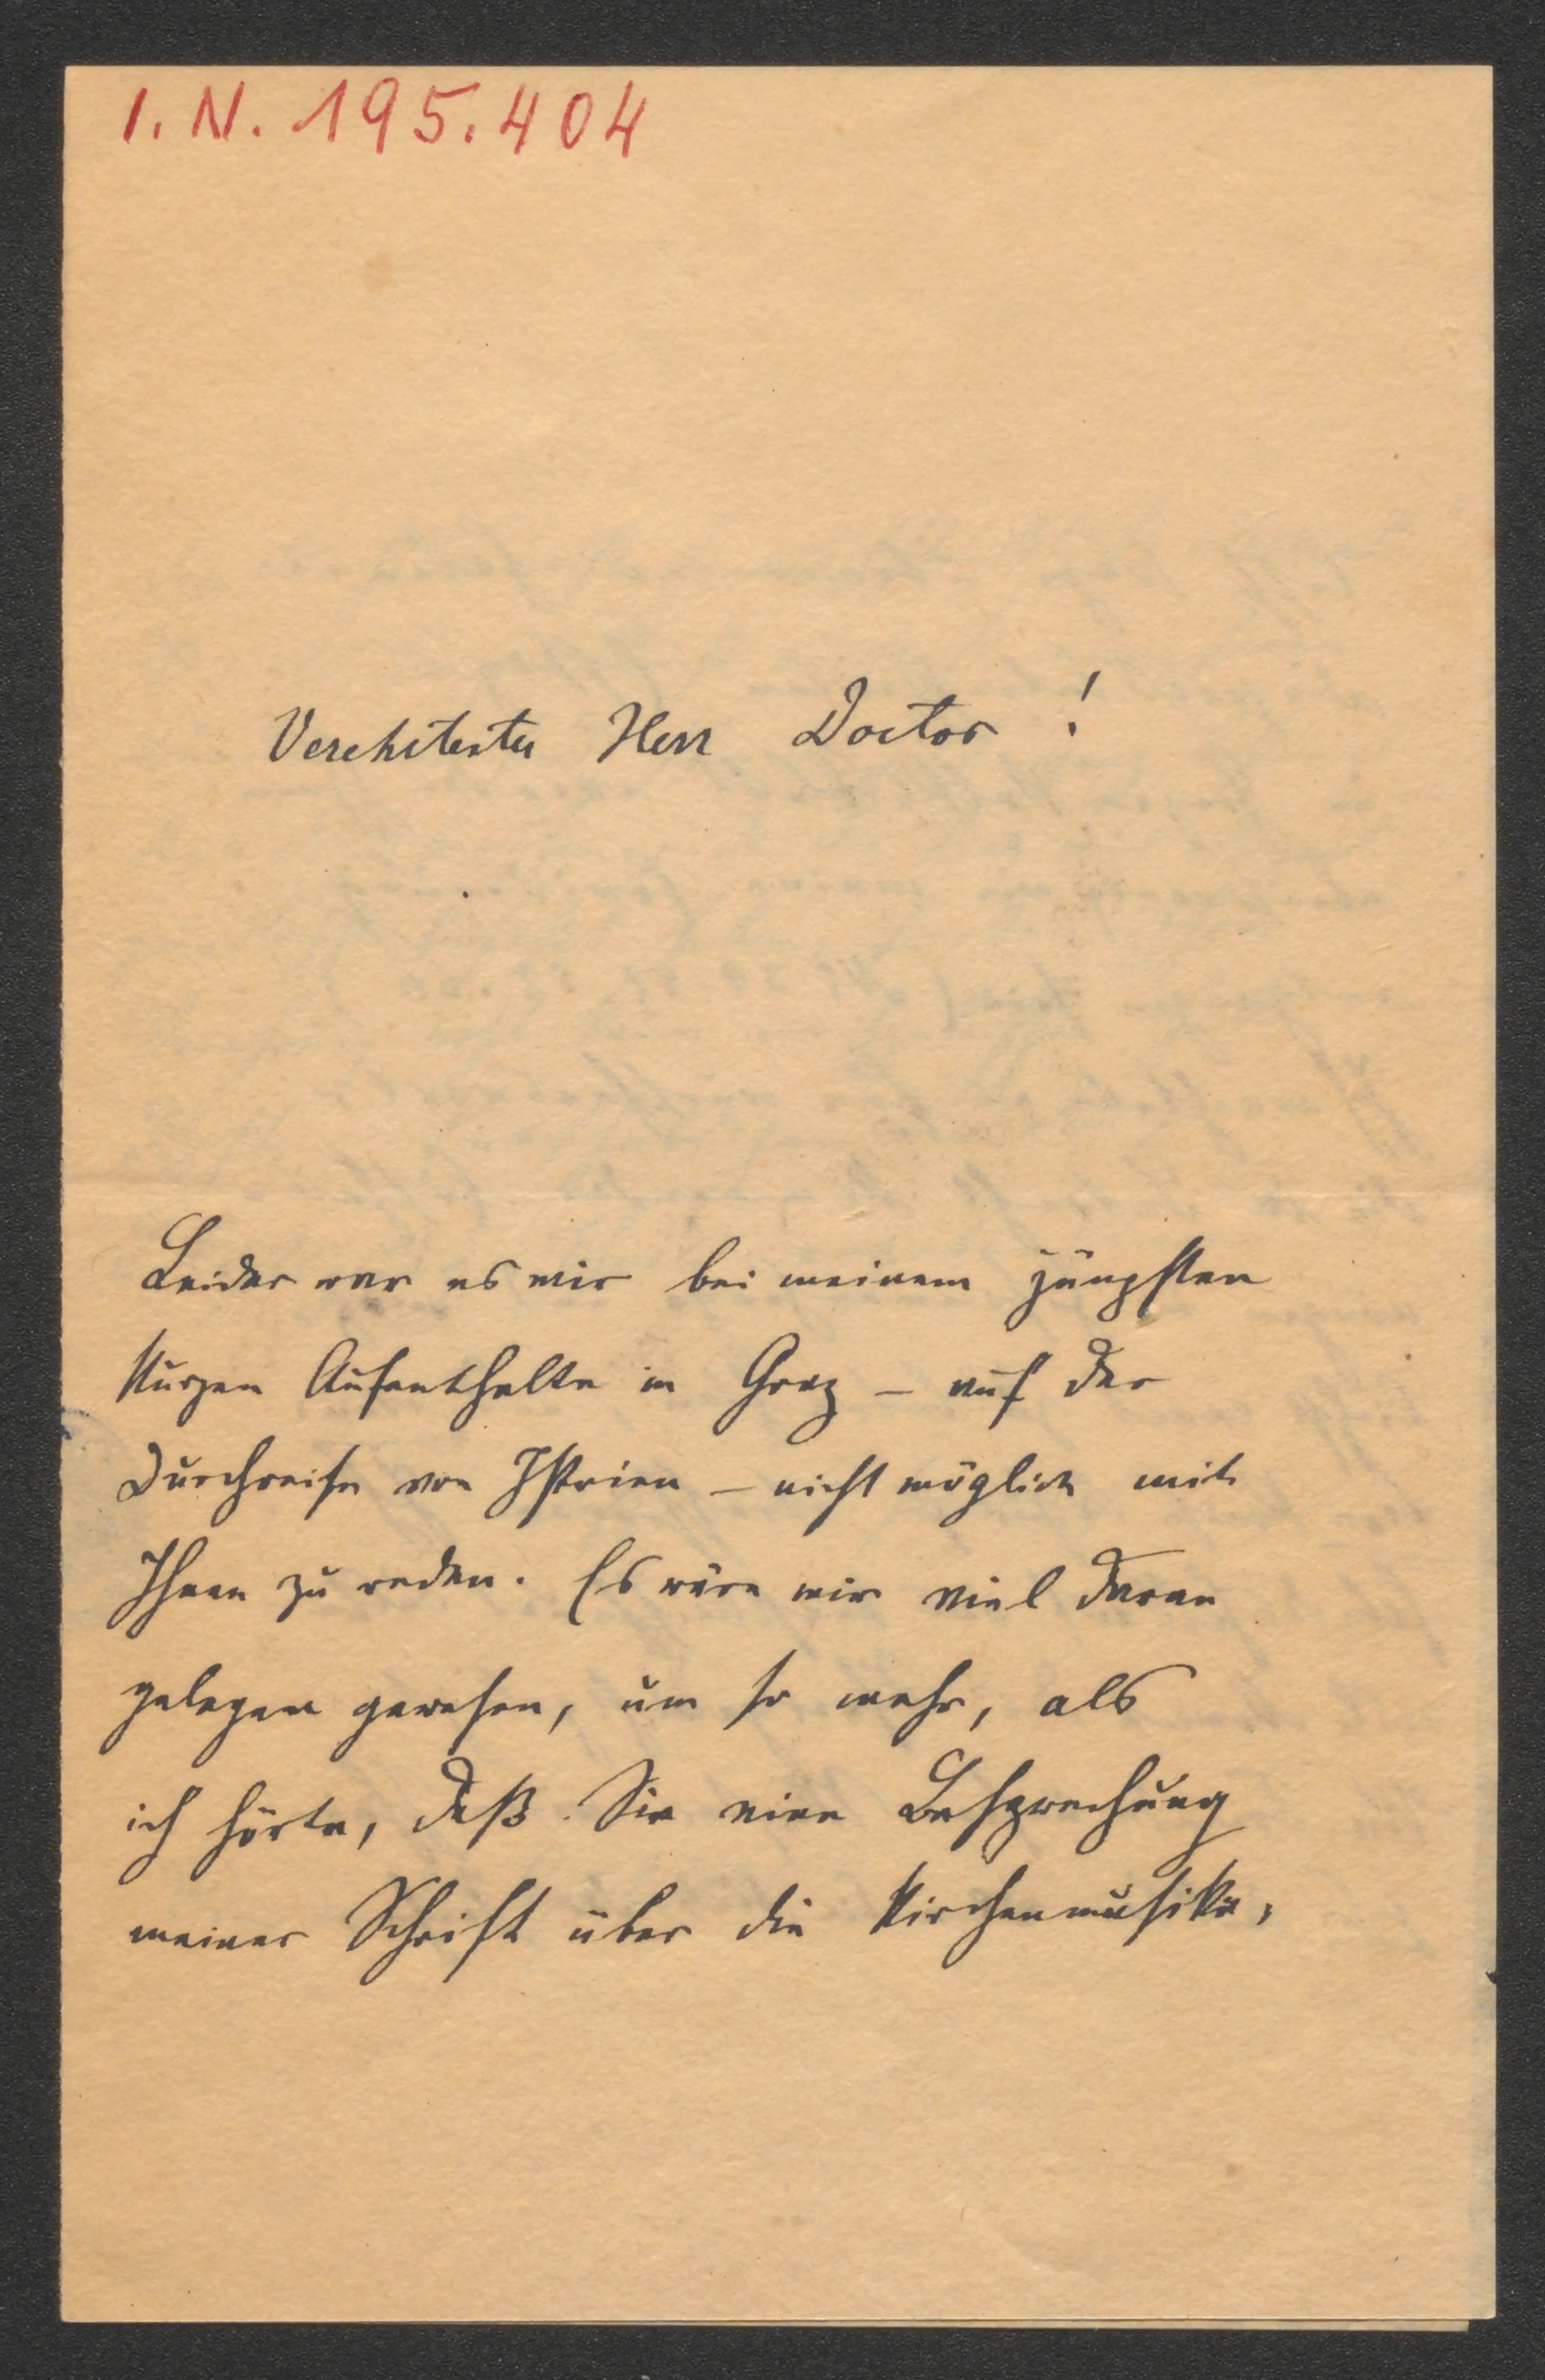 I. N. 195.404
Verehrtester Herr Doctor !
Leider war es mir bei meinem jüngsten
kurzen Aufenthalte in Graz – auf der
Durchreise von Istrien – nicht möglich mit
Ihnen zu reden. Es wäre mir viel daran
gelegen gewesen, um so mehr, als
ich hörte, daß Sie eine Besprechung
meiner Schrift über die